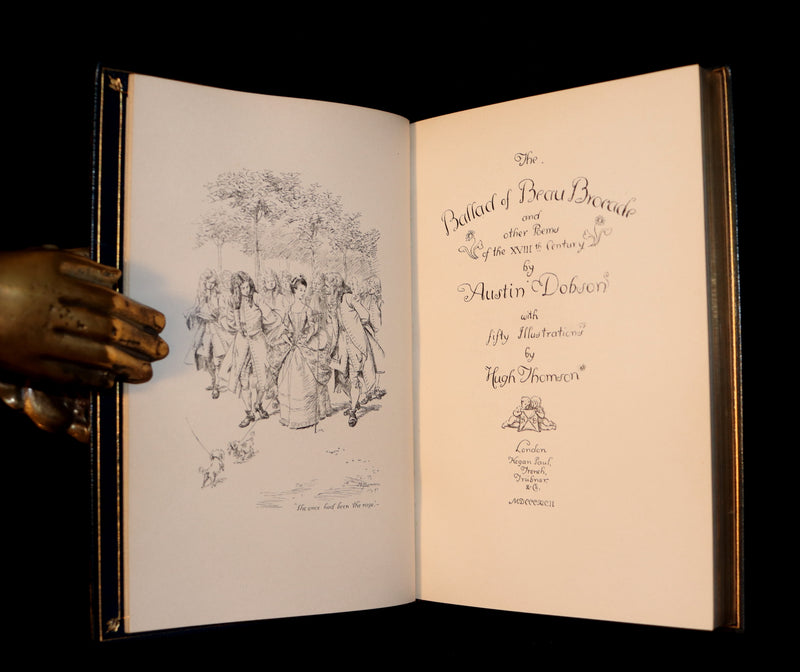 "She once had been the rage".—
The.
Ballad of Beau Brocade
and
other Poems
of the XVIII th Century
by
Austin Dobson
with
fifty Illustrations
by
Hugh Thomson
London
Kegan Paul,
Trench,
Trübner
& Co.
MDCCCXCII